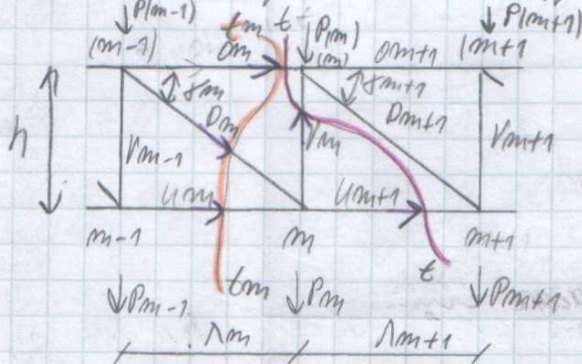 P(m-1) tm t P(m) P(m+1)
(m-1) Om (m) Om+1 (m+1)
γm γm+1
h Vm-1 Dm Vm Dm+1 Vm+1
Um Um+1
m-1 m m+1
Pm-1 tm Pm t Pm+1
λm λm+1